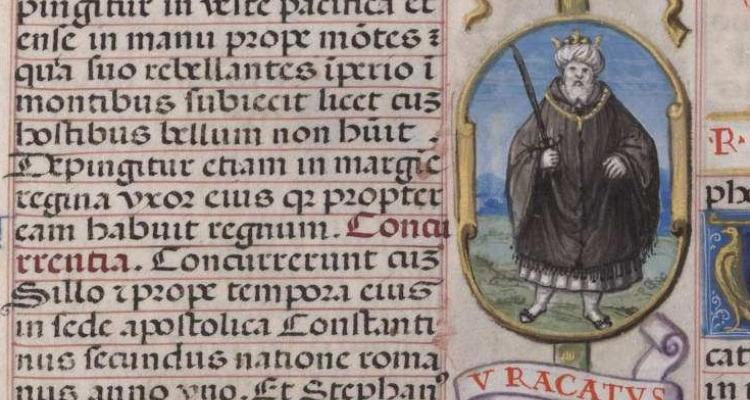 pingitur in veste pacifica et
ense in manu prope mōtes ⁊
qr̄a suo rebellantes īperio ī
montibus subiecit licet cuʒ
hostibus bellum non hūit.
Depingitur etiam in margīe
regina vxor eius qꝛ propter
eam habuit regnum. Concu
rrentia. Concurrerunt cuʒ
Sillo ⁊ prope tempora eius
in sede apostolica Constanti
nus secundus natione roma
nus anno vno. Et Stephanꝰ
V RACATVS
R.
ph
cat
in